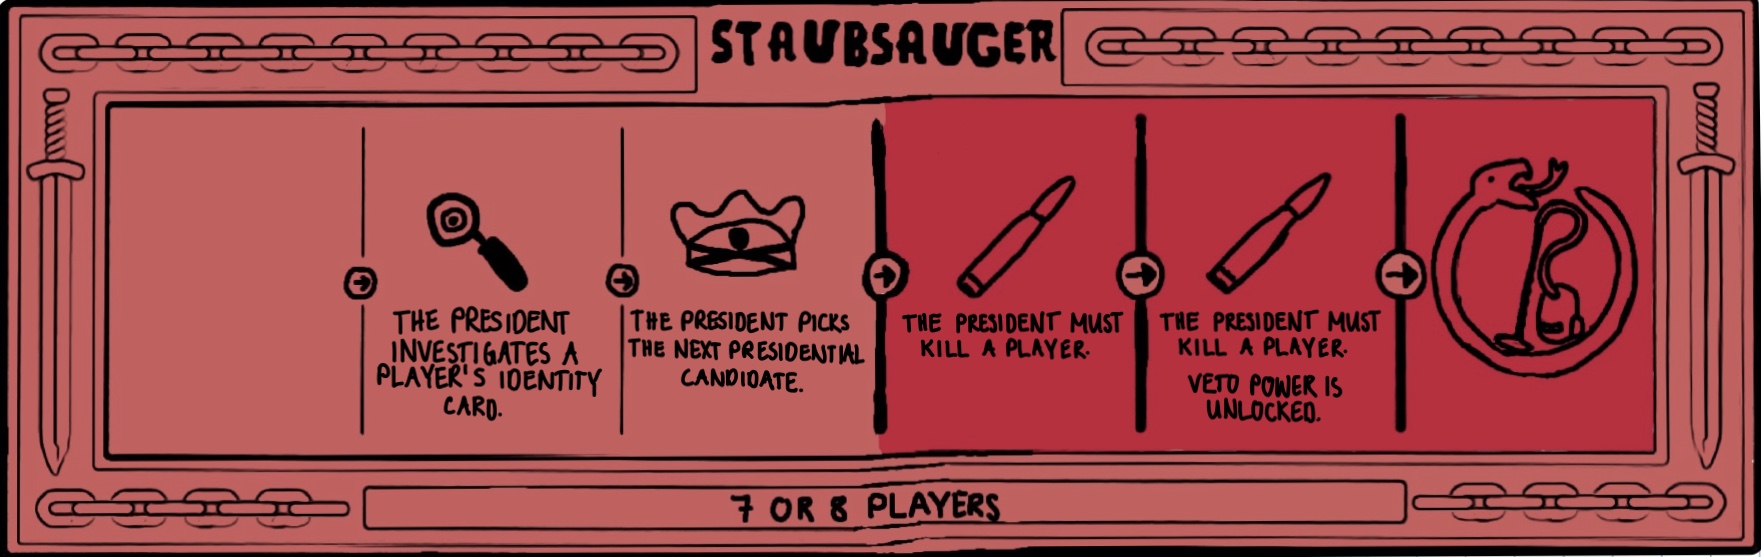 STAUBSAUGER
THE PRESIDENT
INVESTIGATES A
PLAYER'S IDENTITY
CARD.
THE PRESIDENT PICKS
THE NEXT PRESIDENTIAL
CANDIDATE.
THE PRESIDENT MUST
KILL A PLAYER.
THE PRESIDENT MUST
KILL A PLAYER.
VETO POWER IS
UNLOCKED.
7 OR 8 PLAYERS